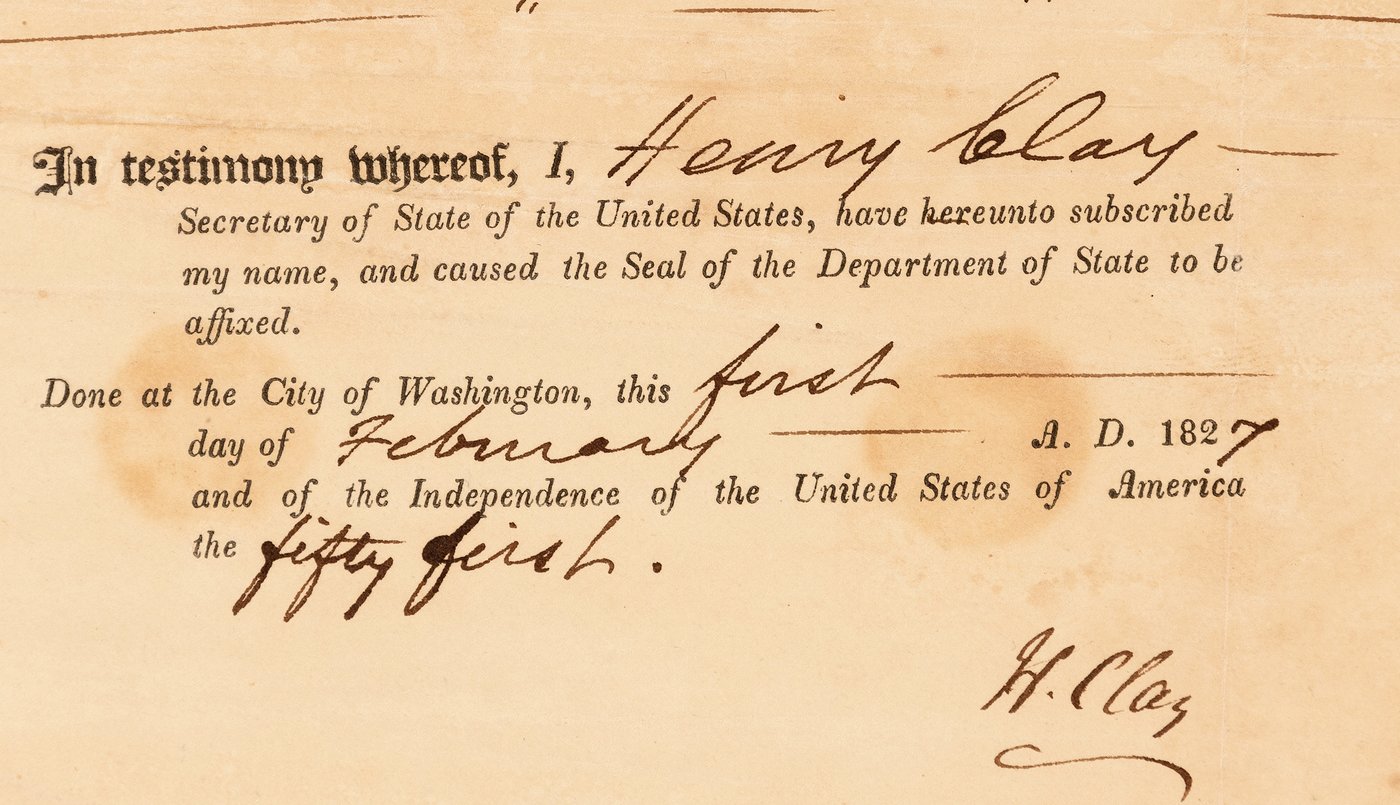 In testimony whereof, I, Henry Clay —
Secretary of State of the United States, have hereunto subscribed
my name, and caused the Seal of the Department of State to be
affixed.
Done at the City of Washington, this first
day of February A. D. 1827
and of the Independence of the United States of America
the fifty first.
H. Clay